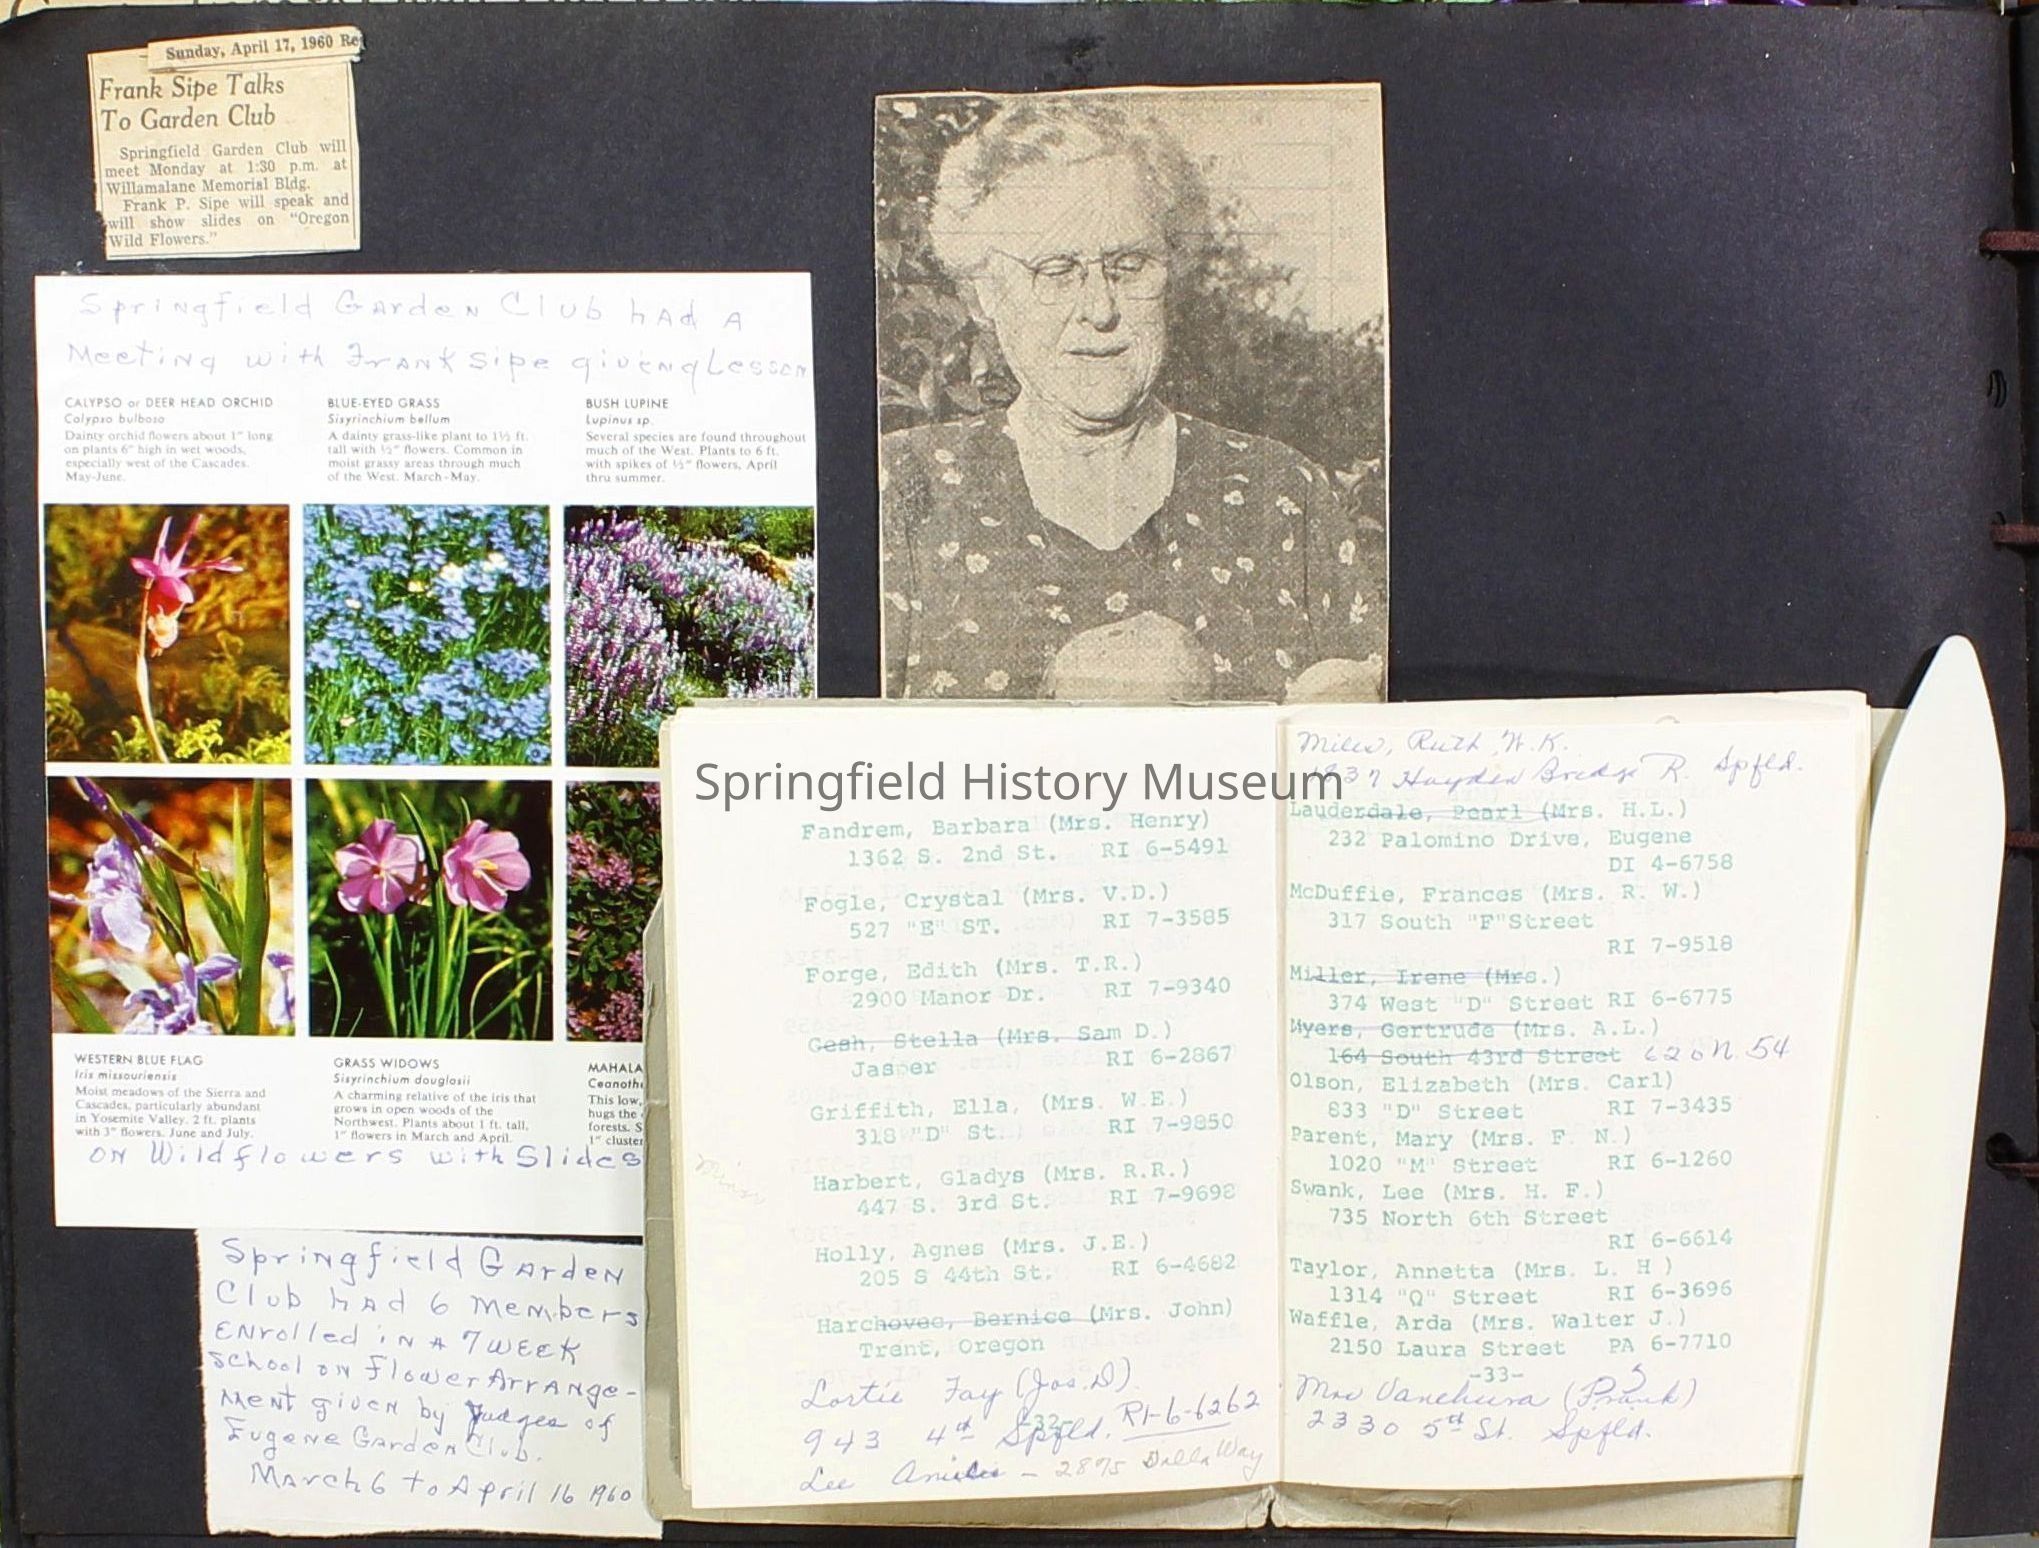 Sunday, April 17, 1960
Frank Sipe Talks
To Garden Club
Springfield Garden Club will
meet Monday at 1:30 p.m. at
Willamalane Memorial Bldg.
Frank P. Sipe will speak and
will show slides on "Oregon
Wild Flowers."
Springfield Garden Club had A
Meeting with Frank Sipe giveng Lesson
CALYPSO or DEER HEAD ORCHID
Calypso bulboso
Dainty orchid flowers about 1" long
on plants 6" high in wet woods,
especially west of the Cascades.
May-June.
BLUE-EYED GRASS
Sisyrinchium bellum
A dainty grass-like plant to 1½ ft.
tall with ½" flowers. Common in
moist grassy areas through much
of the West. March-May.
BUSH LUPINE
Lupinus sp.
Several species are found throughout
much of the West. Plants to 6 ft.
with spikes of ½" flowers, April
thru summer.
WESTERN BLUE FLAG
Iris missouriensis
Moist meadows of the Sierra and
Cascades, particularly abundant
in Yosemite Valley. 2 ft. plants
with 3" flowers. June and July.
GRASS WIDOWS
Sisyrinchium douglasii
A charming relative of the iris that
grows in open woods of the
Northwest. Plants about 1 ft. tall,
1" flowers in March and April.
MAHALA
Ceanoth
This low,
hugs the
forests. S
1" cluster
ON Wildflowers with Slides
Springfield Garden
Club had 6 Members
Enrolled in A 7 week
School on Flower Arrange-
ment given by Judges of
Eugene Garden Club.
March 6 to April 16 1960
Springfield History Museum
Fandrem, Barbara (Mrs. Henry)
1362 S. 2nd St. RI 6-5491
Fogle, Crystal (Mrs. V.D.)
527 "E" ST. RI 7-3585
Forge, Edith (Mrs. T.R.)
2900 Manor Dr. RI 7-9340
Gesh, Stella (Mrs. Sam D.)
Jasper RI 6-2867
Griffith, Ella, (Mrs. W.E.)
318 "D" St. RI 7-9850
Harbert, Gladys (Mrs. R.R.)
447 S. 3rd St. RI 7-9698
Holly, Agnes (Mrs. J.E.)
205 S 44th St. RI 6-4682
Harchovec, Bernice (Mrs. John)
Trent, Oregon
Lortie Fay (Jos. D).
943 4th Spfld. RI-6-6262
-32-
Lee - 2875 Way
Miles, Ruth W.K.
1837 Hayden Bridge R. Spfld.
Lauderdale, Pearl (Mrs. H.L.)
232 Palomino Drive, Eugene
DI 4-6758
McDuffie, Frances (Mrs. R. W.)
317 South "F"Street
RI 7-9518
Miller, Irene (Mrs.)
374 West "D" Street RI 6-6775
Myers, Gertrude (Mrs. A.L.)
164 South 43rd Street 620 N. 54
Olson, Elizabeth (Mrs. Carl)
833 "D" Street RI 7-3435
Parent, Mary (Mrs. F. N.)
1020 "M" Street RI 6-1260
Swank, Lee (Mrs. H. F.)
735 North 6th Street
RI 6-6614
Taylor, Annetta (Mrs. L. H )
1314 "Q" Street RI 6-3696
Waffle, Arda (Mrs. Walter J.)
2150 Laura Street PA 6-7710
-33-
Mrs Vanchura (Frank)
2330 5th St. Spfld.